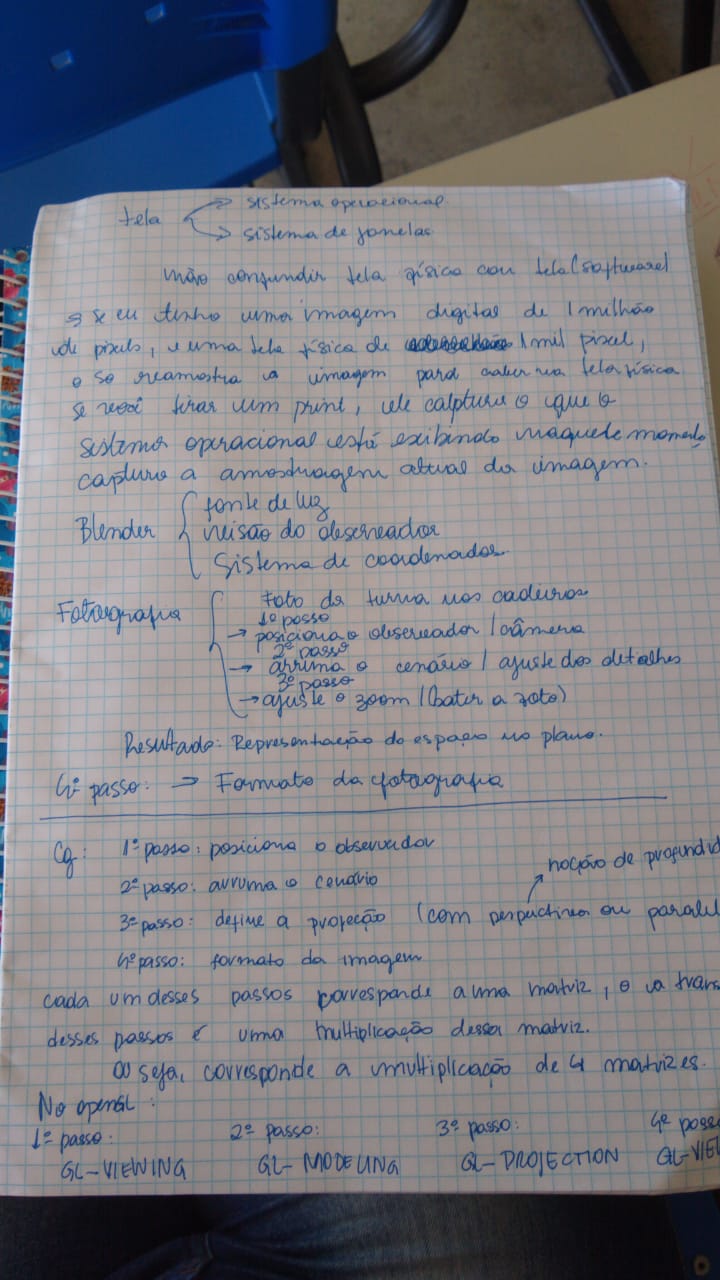 tela → sistema operacional
→ sistema de janelas
não confundir tela física com tela (software)
→ se eu tenho uma imagem digital de 1 milhão
de pixels, e uma tela física de 1 mil pixel,
o SO reamostra a imagem para caber na tela física
se você tirar um print, ele calptura o que o
sistema operacional está exibindo naquele momento,
captura a amostragem atual da imagem.
Blender { fonte de luz
visão do observador
Sistema de coordenadas
Fotografia { Foto da turma nas cadeiras
1º passo
→ posiciona o observador / câmera
2º passo
→ arruma o cenário / ajuste dos detalhes
3º passo
→ ajuste o zoom / (bater a foto)
Resultado: Representação do espaço no plano.
4º passo: → Formato da fotografia
Cg: 1º passo: posiciona o observador
noção de profundid
2º passo: arruma o cenário
3º passo: define a projeção (com perspectiva ou paralel
4º passo: formato da imagem
cada um desses passos corresponde a uma matriz, e a trans
desses passos é uma multiplicação dessa matriz.
ou seja, corresponde a multiplicação de 4 matrizes.
No opengl:
1º passo: 2º passo: 3º passo: 4º passo
GL-VIEWING GL-MODELING GL-PROJECTION GL-VIE